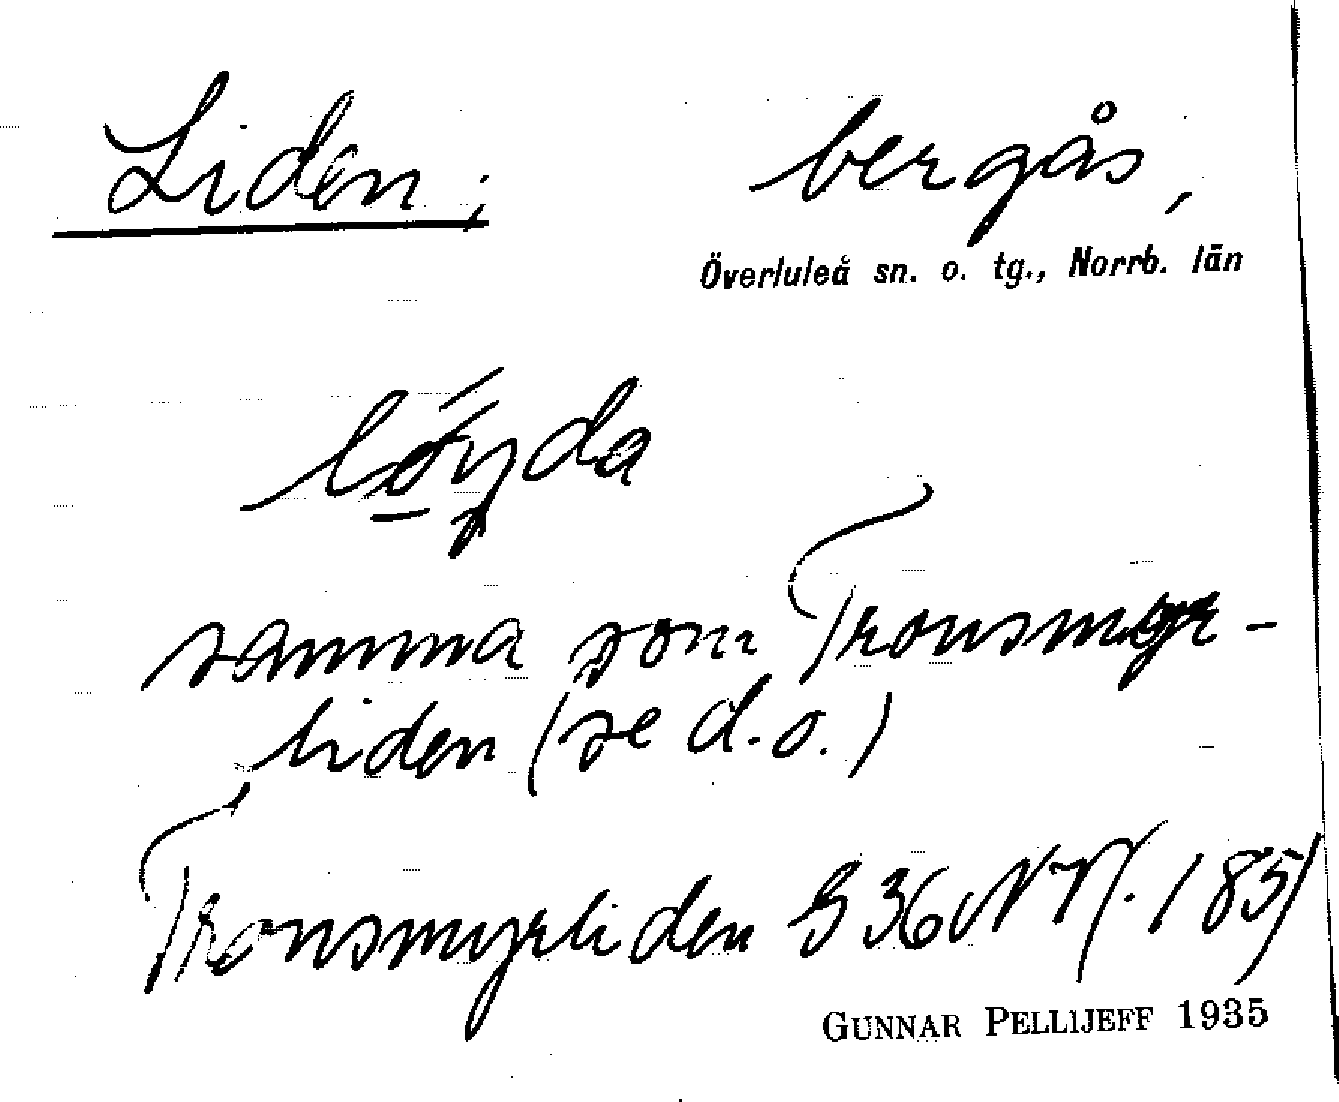 Liden, bergås,
Överluleå sn. o. tg., Norrb. län
löyda
samma som Tronsmyr-
liden (se d.o.)
Tronsmyrliden G 36 NV/. 185/
GUNNAR PELLIJEFF 1935